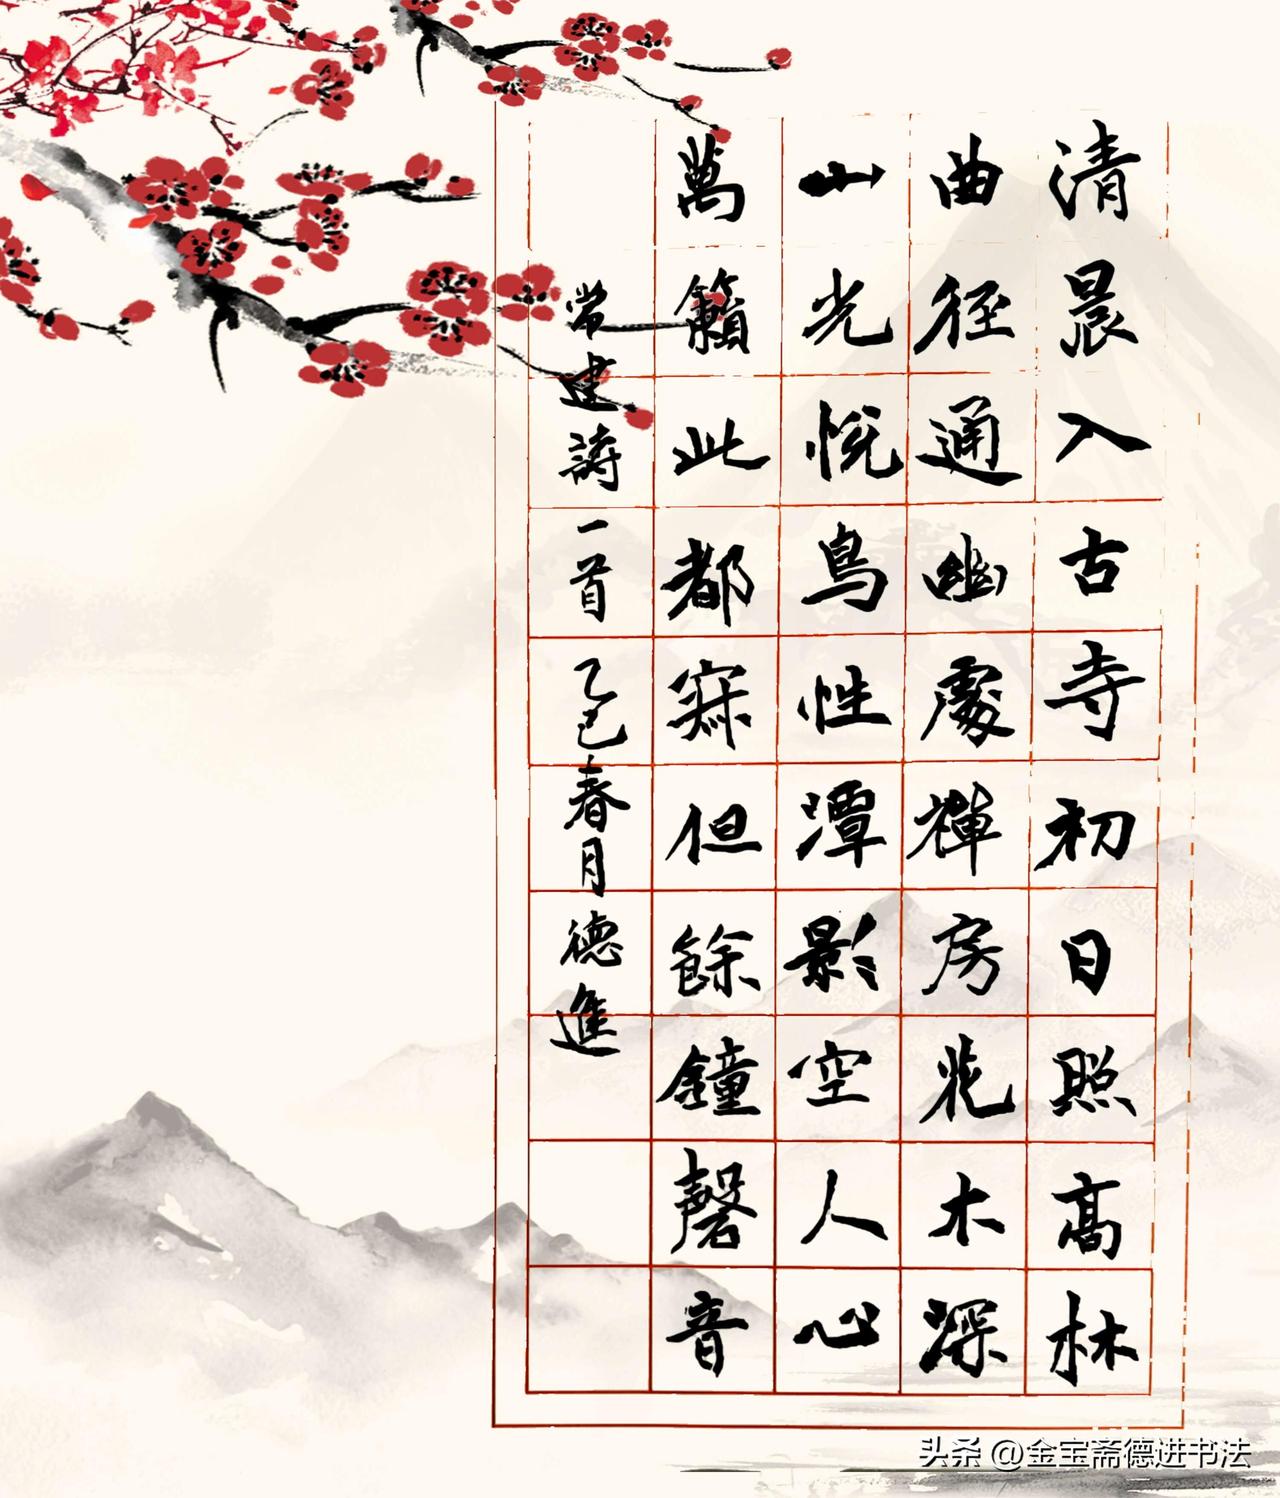 清晨入古寺初日照高林
曲径通幽處禪房花木深
山光悅鳥性潭影空人心
萬籟此都寂但餘鐘磬音
常建詩一首 乙巳春月德進
头条 @金宝斋德进书法